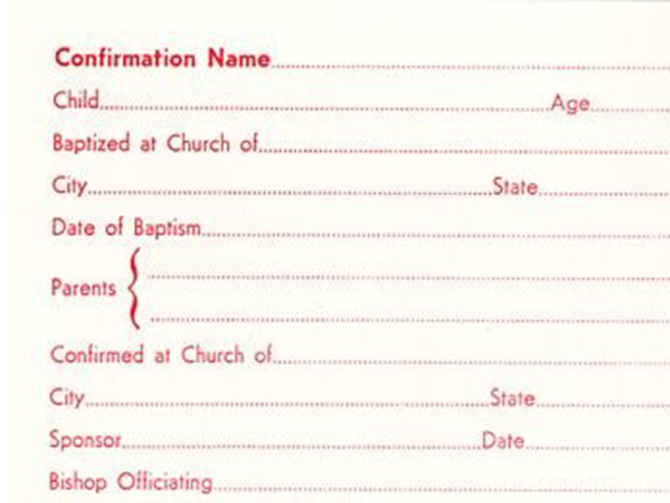 Confirmation Name
Child Age
Baptized at Church of
City State
Date of Baptism
Parents {
Confirmed at Church of
City State
Sponsor Date
Bishop Officiating